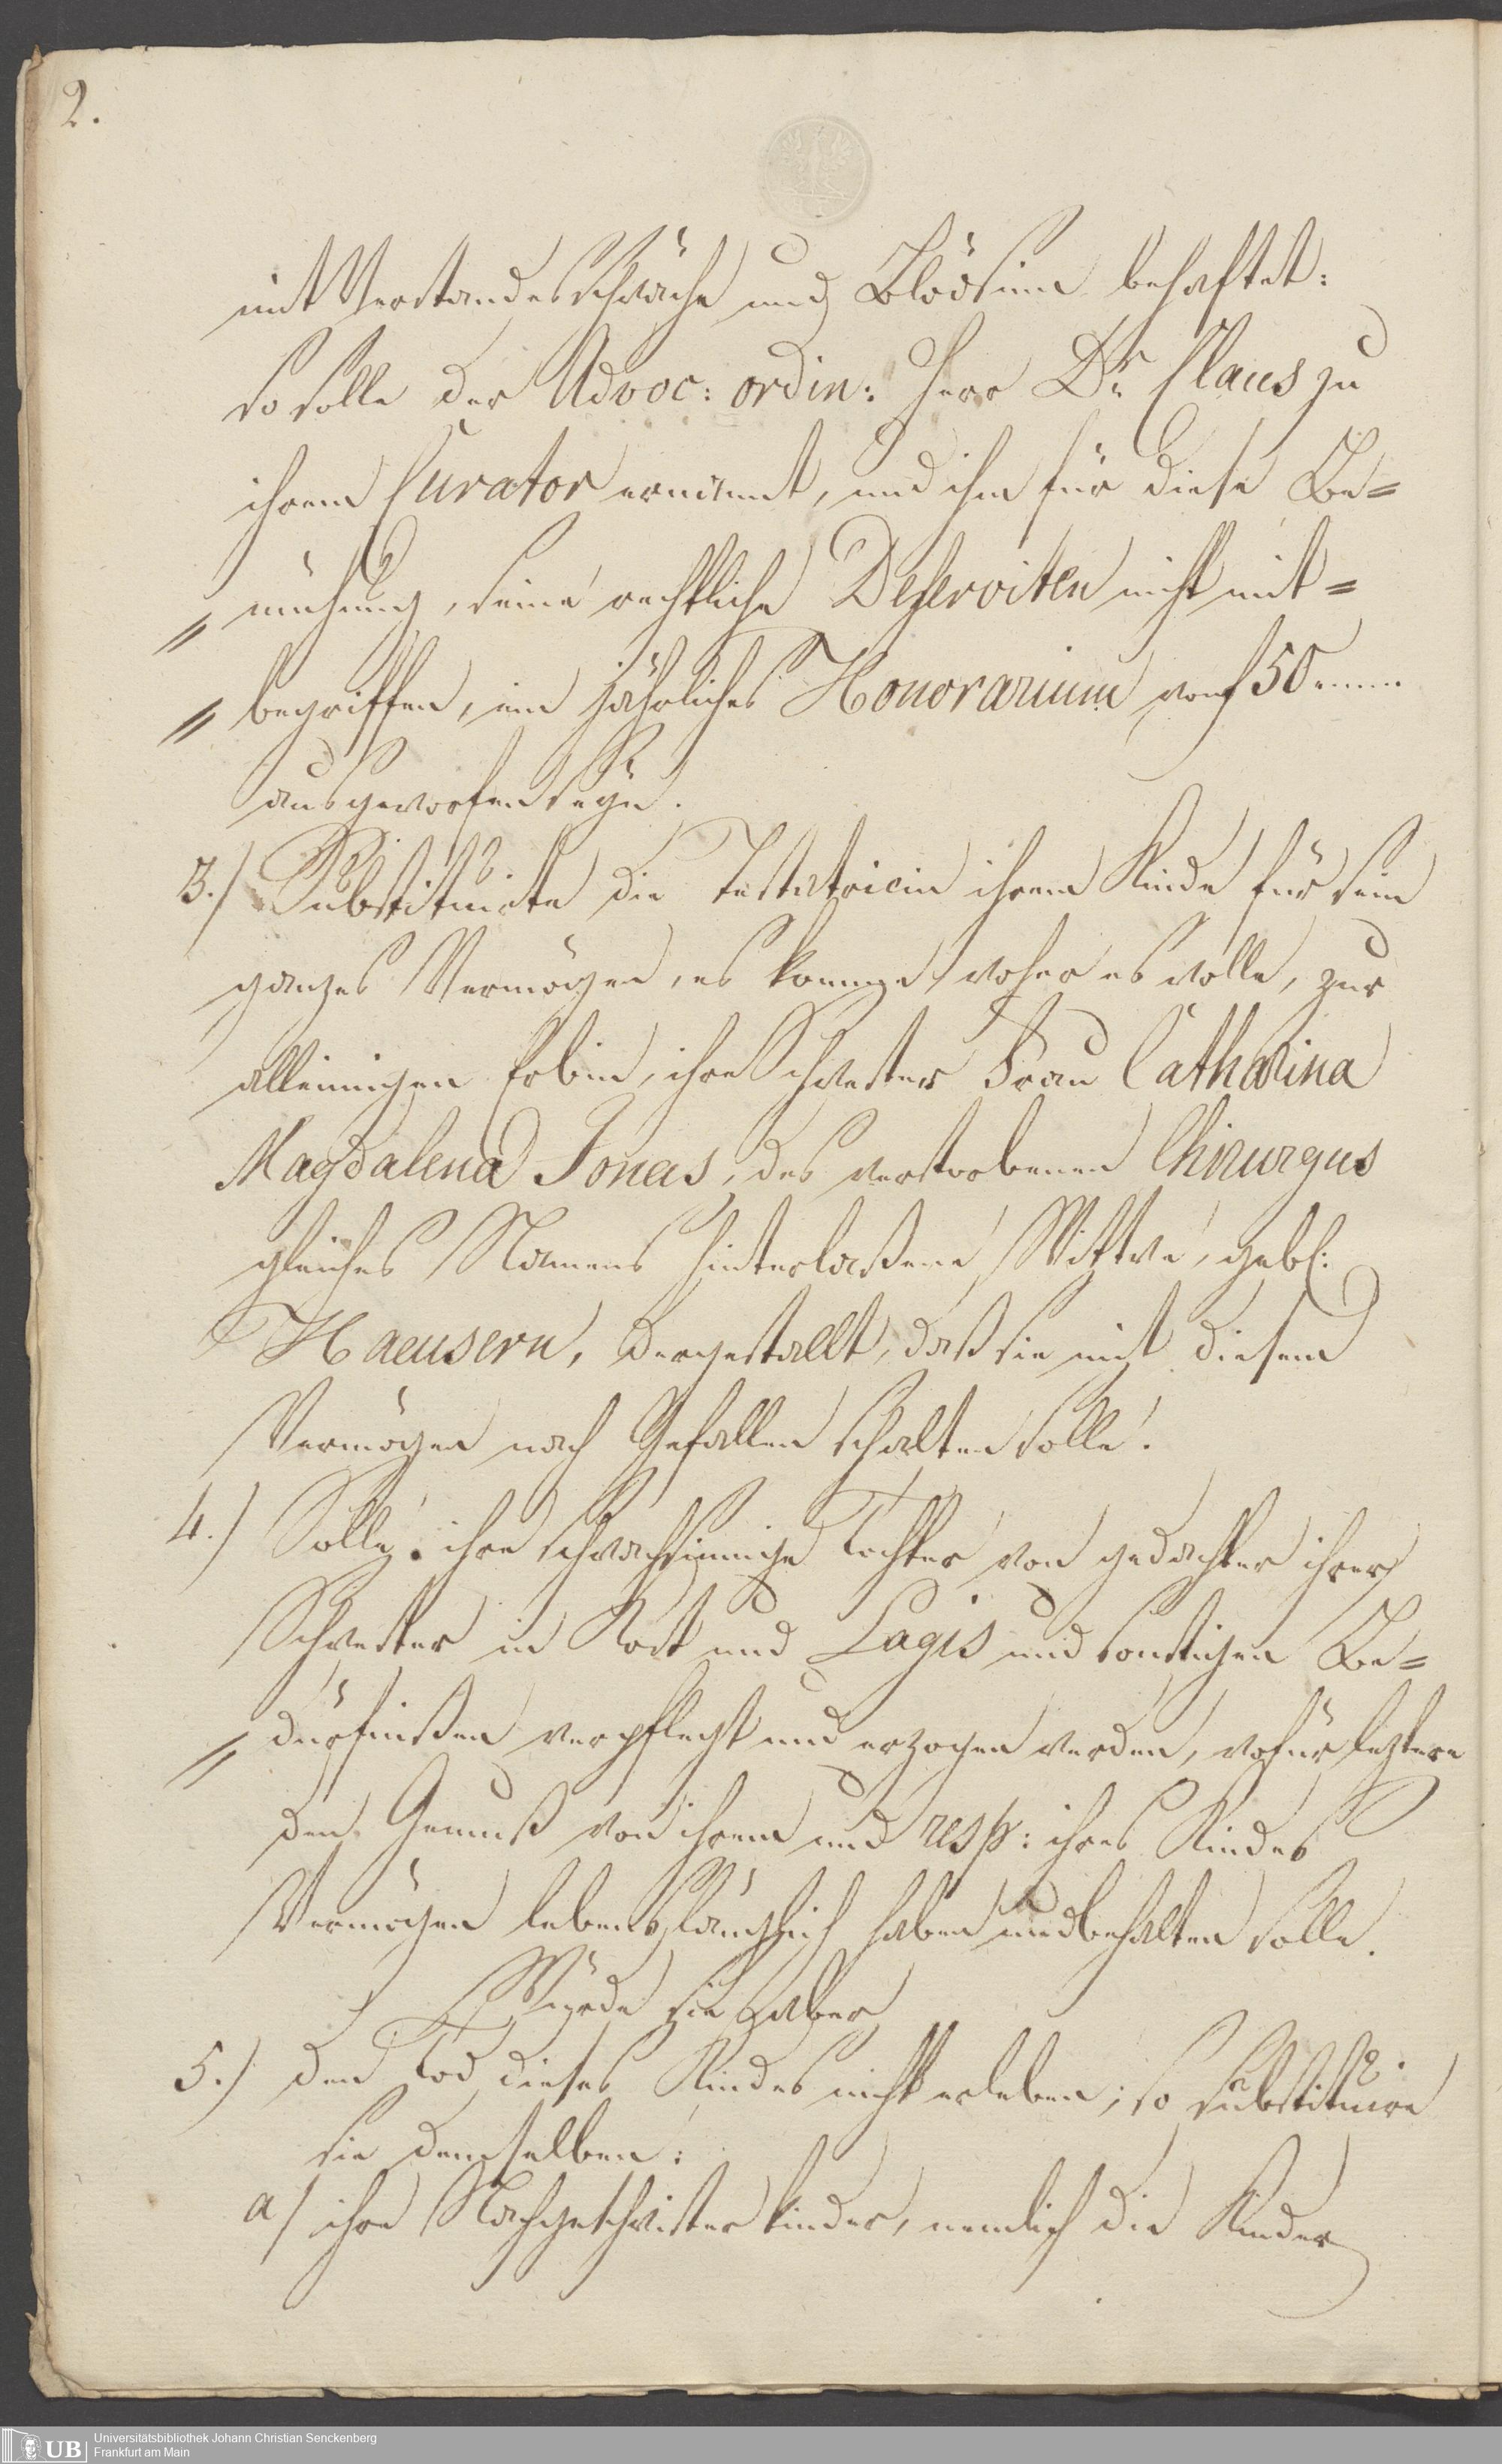 2.
mit Verstandesschwäche und Blödsinn behaftet:
so solle der Advoc: ordin: Herr Dr. Claus zu
ihrem Curator ernannt, und ihm für diese Be=
〃mühung, seine rechtliche Deserviten nicht mit=
〃begriffen, ein jährliches Honorarium von f 50
ausgeworfen seyn.
3.) Substituirte die Testatricin ihrem Kinde für sein
ganzes Vermögen, es komme woher es wolle, zur
alleinigen Erbin, ihre Schwester Frau Catharina
Magdalena Jonas, des verstorbenen Chirurgus
gleiches Namens hinterlaßene Wittwe, gebl:
Haeusern, dergestallt, daß sie mit diesem
Vermögen nach Gefallen schalten solle.
4.) Solle ihre schwachsinnige Tochter von gedachter ihrer
Schwester in Kost und Logis und sonstigen Be=
〃dürfnißen verpflegt und erzogen werden, wofür leztere
den Genuß von ihrem und resp: ihres Kindes
Vermögen lebenslänglich haben und behalten solle.
Würde sie aber
5.) den Tod dieses Kindes nicht erleben; so substituire
sie demselben:
a) ihre Nachgeschwisterkinder, nemlich die Kinder
Universitätsbibliothek Johann Christian Senckenberg
Frankfurt am Main
UB